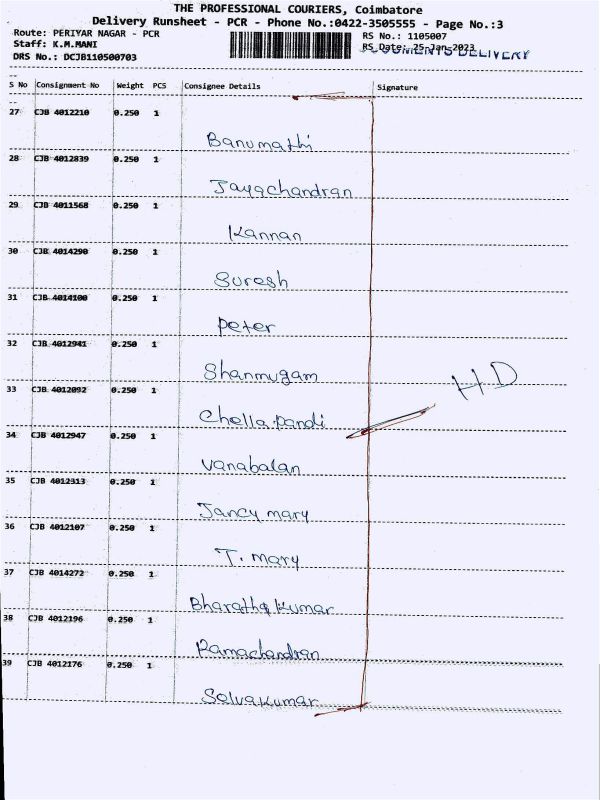 THE PROFESSIONAL COURIERS, Coimbatore
Delivery Runsheet - PCR - Phone No.:0422-3505555 - Page No.:3
Route: PERIYAR NAGAR - PCR
RS No.: 1105007
Staff: K.M.MANI
RS Date: 25-Jan-2023
DRS No.: DCJB110500703
DELIVERY
S No Consignment No Weight PCS Consignee Details Signature
27 CJB 4012210 0.250 1
Banumathi
28 CJB 4012839 0.250 1
Jayachandran
29 CJB 4011568 0.250 1
Kannan
30 CJB 4014290 0.250 1
Suresh
31 CJB 4014100 0.250 1
Peter
32 CJB 4012941 0.250 1
Shanmugam
H.D
33 CJB 4012092 0.250 1
Chella Pandi
34 CJB 4012947 0.250 1
Vanabalan
35 CJB 4012313 0.250 1
Jancy mary
36 CJB 4012107 0.250 1
T. mary
37 CJB 4014272 0.250 1
Bharathq Kumar
38 CJB 4012196 0.250 1
Ramachandran
39 CJB 4012176 0.250 1
Selvakumar